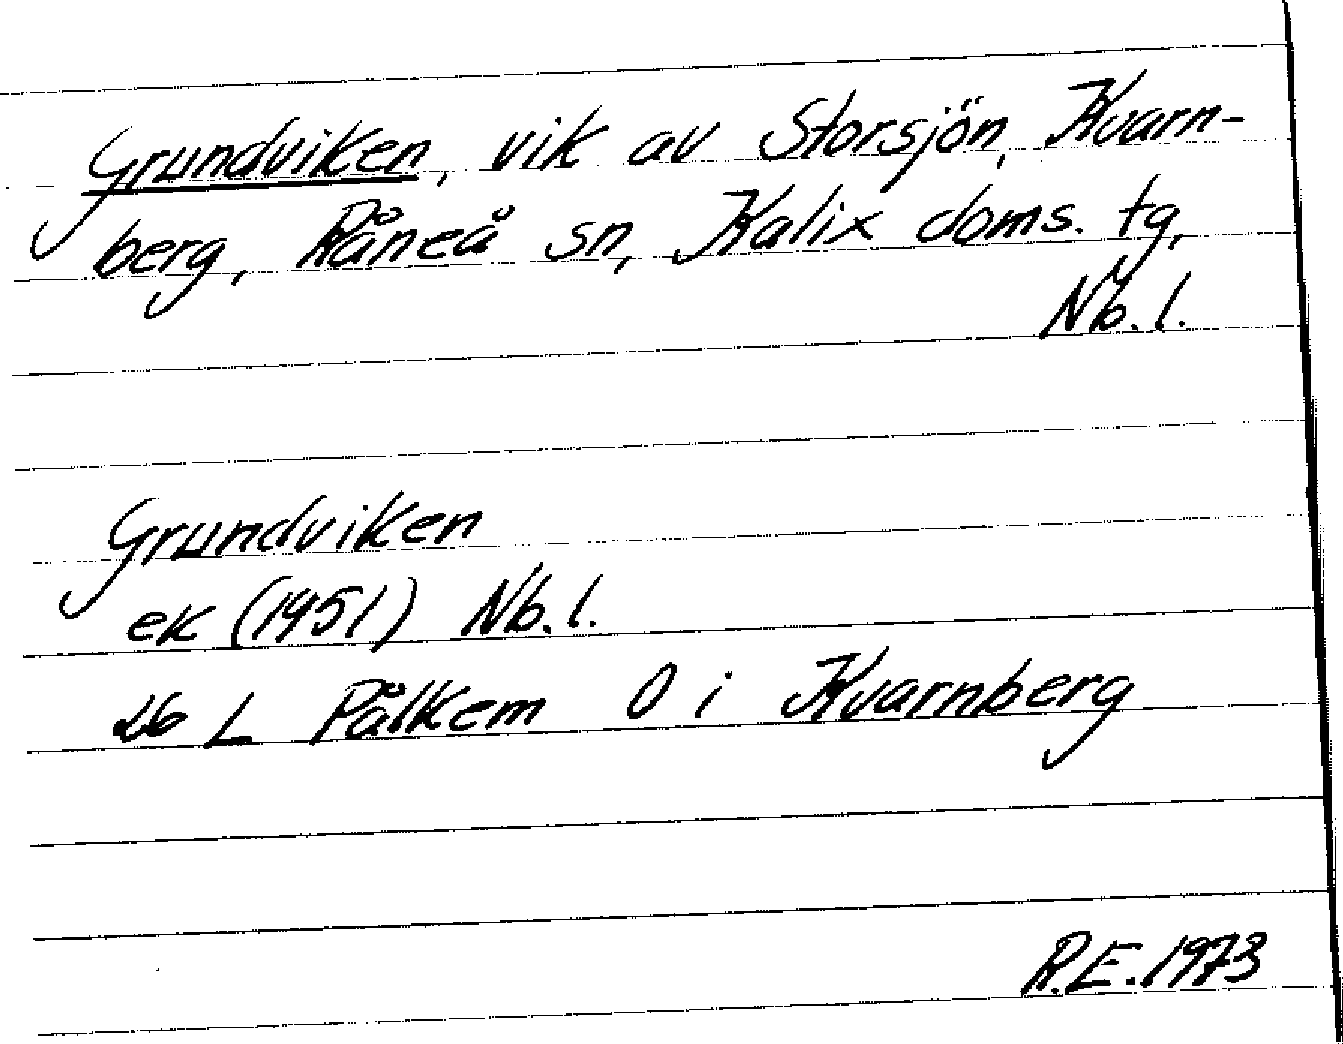 Grundviken, vik av Storsjön, Kvarn-
berg, Råneå sn, Kalix doms. tg,
Nb. l.
Grundviken
ek (1951) Nb. l.
L Pålkem O i Kvarnberg
R.E. 1973